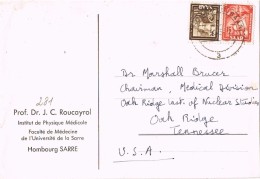 281
Prof. Dr. J. C. Roucayrol
Institut de Physique Médicale
Faculté de Médecine
de l'Université de la Sarre
Hombourg SARRE
Dr Marshall Brucer
Chairman, Medical Division
Oak Ridge Inst. of Nuclear Studies
Oak Ridge
Tennessee
U.S.A.